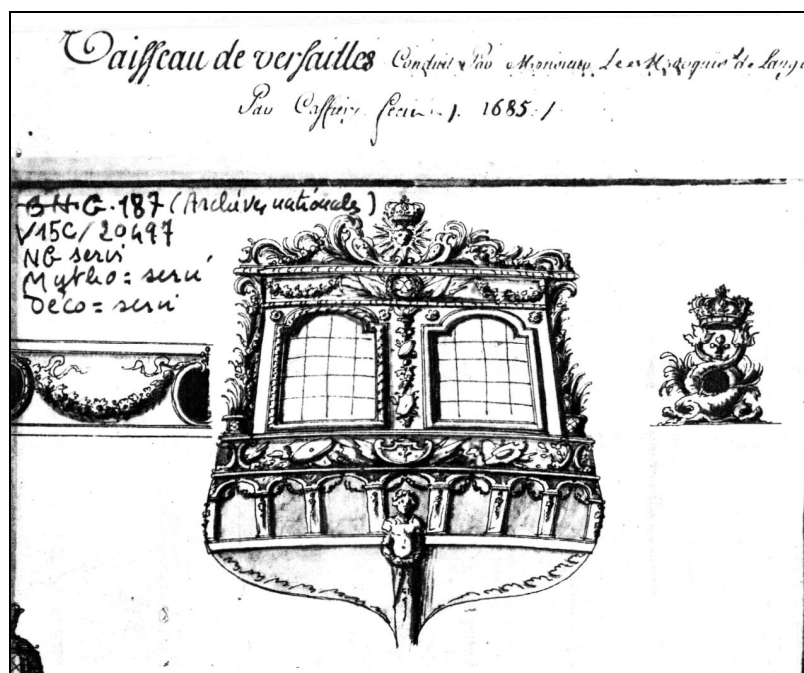 Vaisseau de versailles Conduit Par Monsieur Le Marquis de Lang
Par Caffieri fecit 1685
B H G. 187 (Archives nationales)
V15C/20497
NB servi
Mytho = servi
Deco = servi